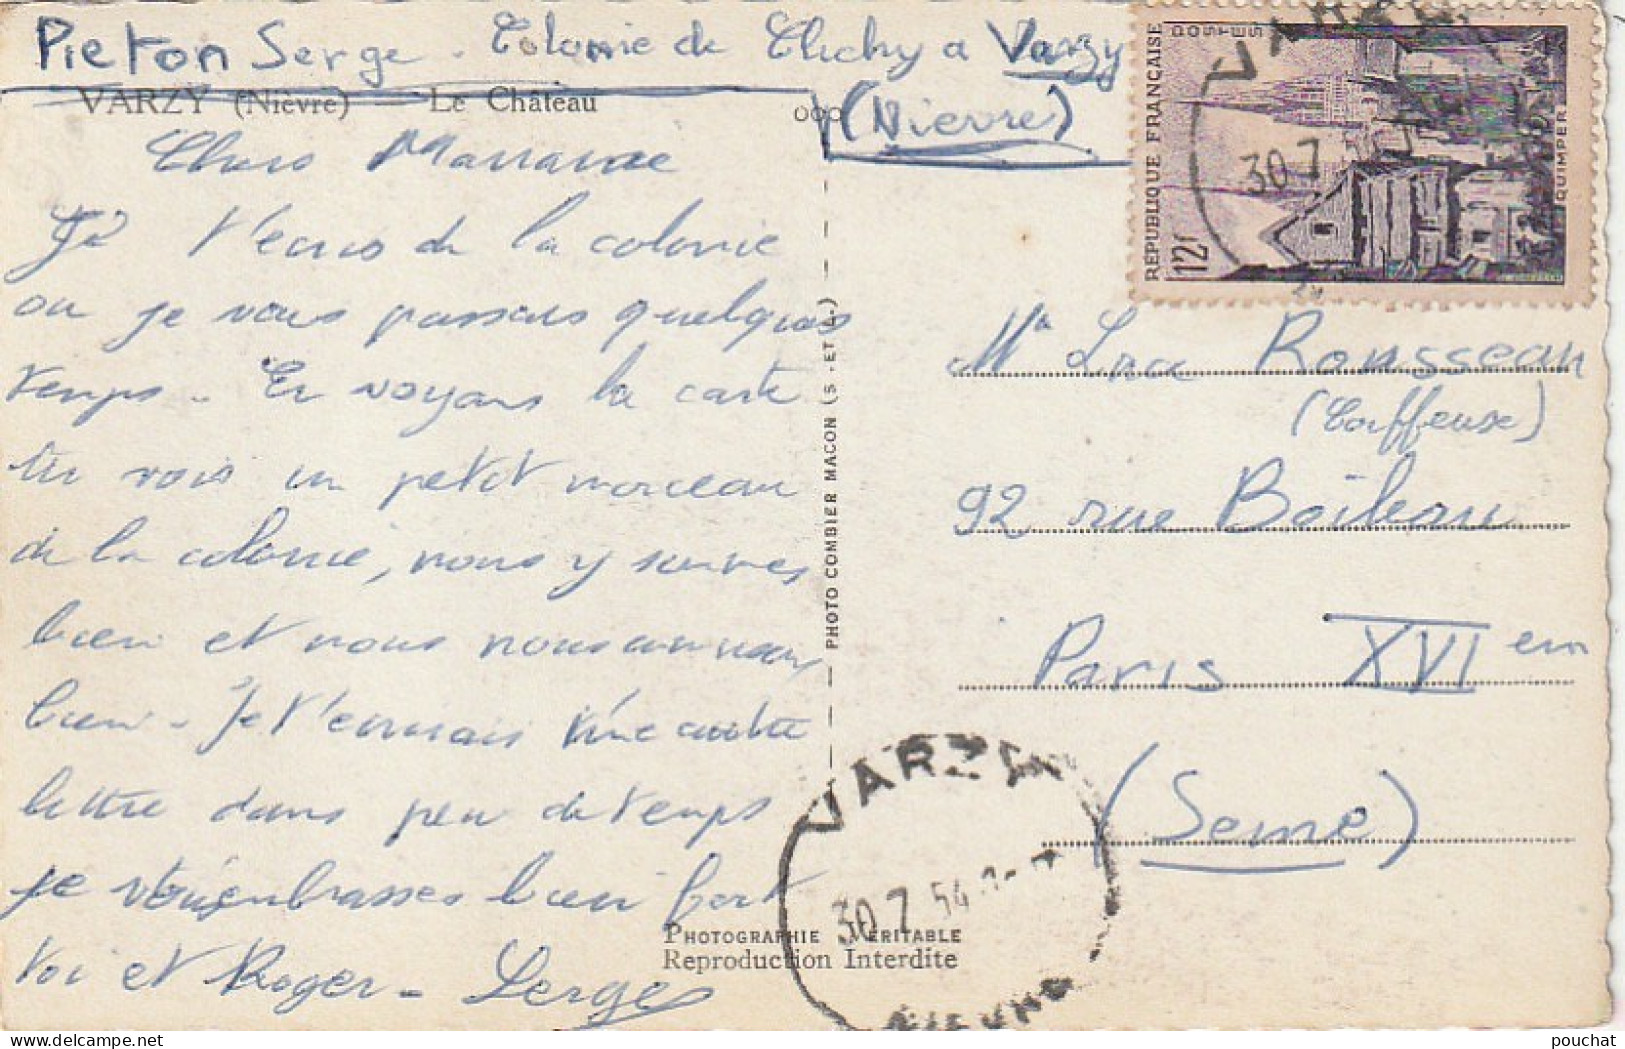 Pieton Serge - Colonie de Clichy a Varzy
(Nievre)
VARZY (Nièvre) — Le Château
Chere Marraine
Je t'ecris de la colonie
ou je vous passais quelques
temps. En voyans la carte
tu vois un petit morceau
de la colonie, nous y sommes
bien et nous nous amusons
bien. Je t'ecrirais une autre
lettre dans peu de temps
je embrasses bien fort
toi et Roger - Serge
PHOTO COMBIER MACON (S. ET L.)
PHOTOGRAPHIE VÉRITABLE
Reproduction Interdite
RÉPUBLIQUE FRANÇAISE
POSTES
12F
QUIMPER
VARZY
30 7
Rousseau
(Coiffeuse)
92 rue Boileau
Paris XVI em
(Seine)
VARZY
30 7 54
NIEVRE
pouchat